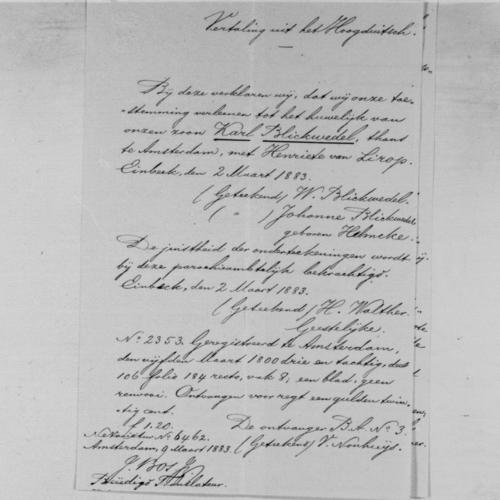 Vertaling uit het Hoogduitsch.
Bij deze verklaren wij, dat wij onze toe-
stemming verleenen tot het huwelijk van
onzen zoon Karl Blickwedel, thans
te Amsterdam, met Henriete van Lirop.
Einbeck, den 2 Maart 1883.
(Geteekend) W. Blickwedel.
( " ) Johanne Blickwedel
geboren Helmcke.
De juistheid der onderteekeningen wordt
bij deze parochieambtelijk bekrachtigd.
Einbeck, den 2 Maart 1883.
(Geteekend) H. Walther
Geestelijke.
No 2353. Geregistreerd te Amsterdam,
den vijfden Maart 1800 drie en tachtig, deel
106 folio 184 recto, vak 8, een blad, geen
renvooi. Ontvangen voor regt een gulden twin-
tig cent.
f 1.20. De ontvanger B.A. No 3.
No 6462. (Geteekend) V. Nouhuijs.
Amsterdam, 9 Maart 1883.
J. Bos
Beëedigd Translateur.